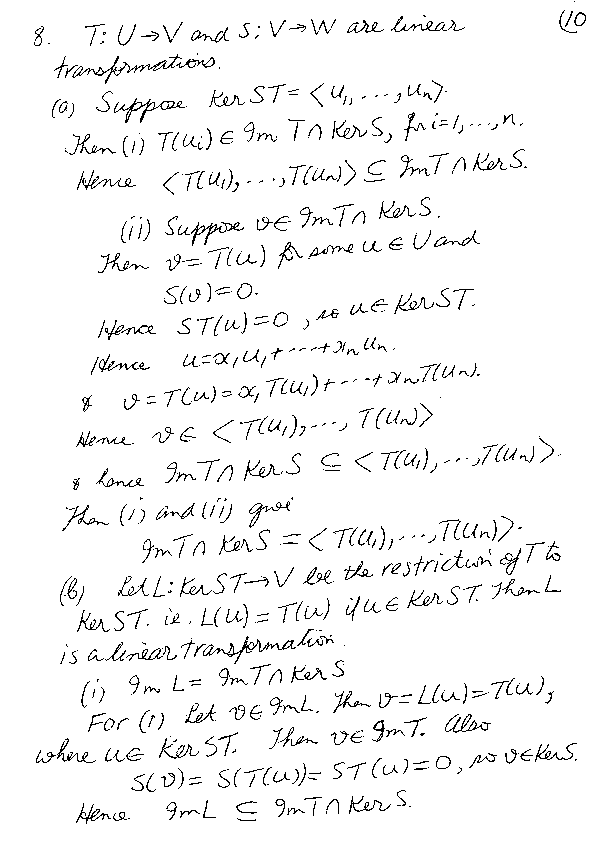 (10
8. T: U→V and S: V→W are linear
transformations.
(a) Suppose Ker ST = ⟨u₁, ..., uₙ⟩.
Then (i) T(uᵢ) ∈ Im T ∩ Ker S, for i=1, ..., n.
Hence ⟨T(u₁), ..., T(uₙ)⟩ ⊆ Im T ∩ Ker S.
(ii) Suppose v ∈ Im T ∩ Ker S.
Then v = T(u) for some u ∈ U and
S(v) = 0.
Hence ST(u) = 0, so u ∈ Ker ST.
Hence u = x₁u₁ + ... + xₙuₙ.
& v = T(u) = x₁T(u₁) + ... + xₙT(uₙ).
Hence v ∈ ⟨T(u₁), ..., T(uₙ)⟩
& hence Im T ∩ Ker S ⊆ ⟨T(u₁), ..., T(uₙ)⟩.
Then (i) and (ii) give
Im T ∩ Ker S = ⟨T(u₁), ..., T(uₙ)⟩.
(b) Let L: Ker ST → V be the restriction of T to
Ker ST. ie. L(u) = T(u) if u ∈ Ker ST. Then L
is a linear transformation.
(i) Im L = Im T ∩ Ker S
For (1) Let v ∈ Im L. Then v = L(u) = T(u),
where u ∈ Ker ST. Then v ∈ Im T. Also
S(v) = S(T(u)) = ST(u) = 0, so v ∈ Ker S.
Hence Im L ⊆ Im T ∩ Ker S.